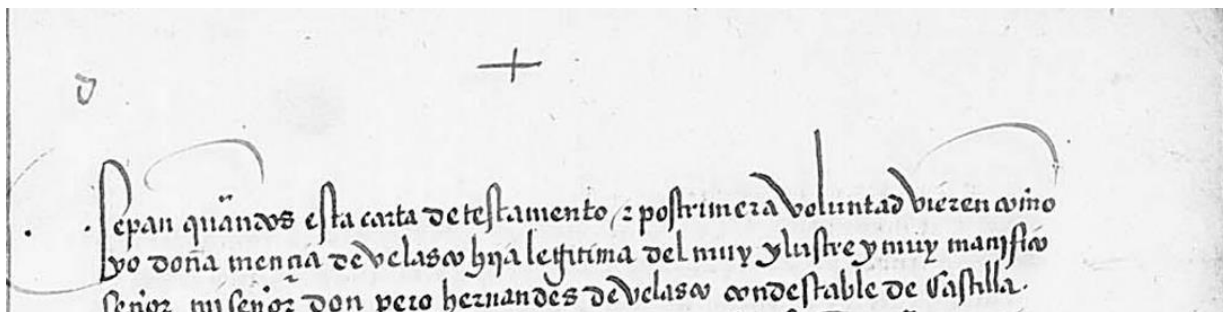 Sepan quãntos esta carta de testamento / τ postrimera voluntad vieren commo
yo doña mençia de velasco hija legitima del muy ylustre y muy manifico
señor mi señor don pero hernandes de velasco condestable de Castilla.